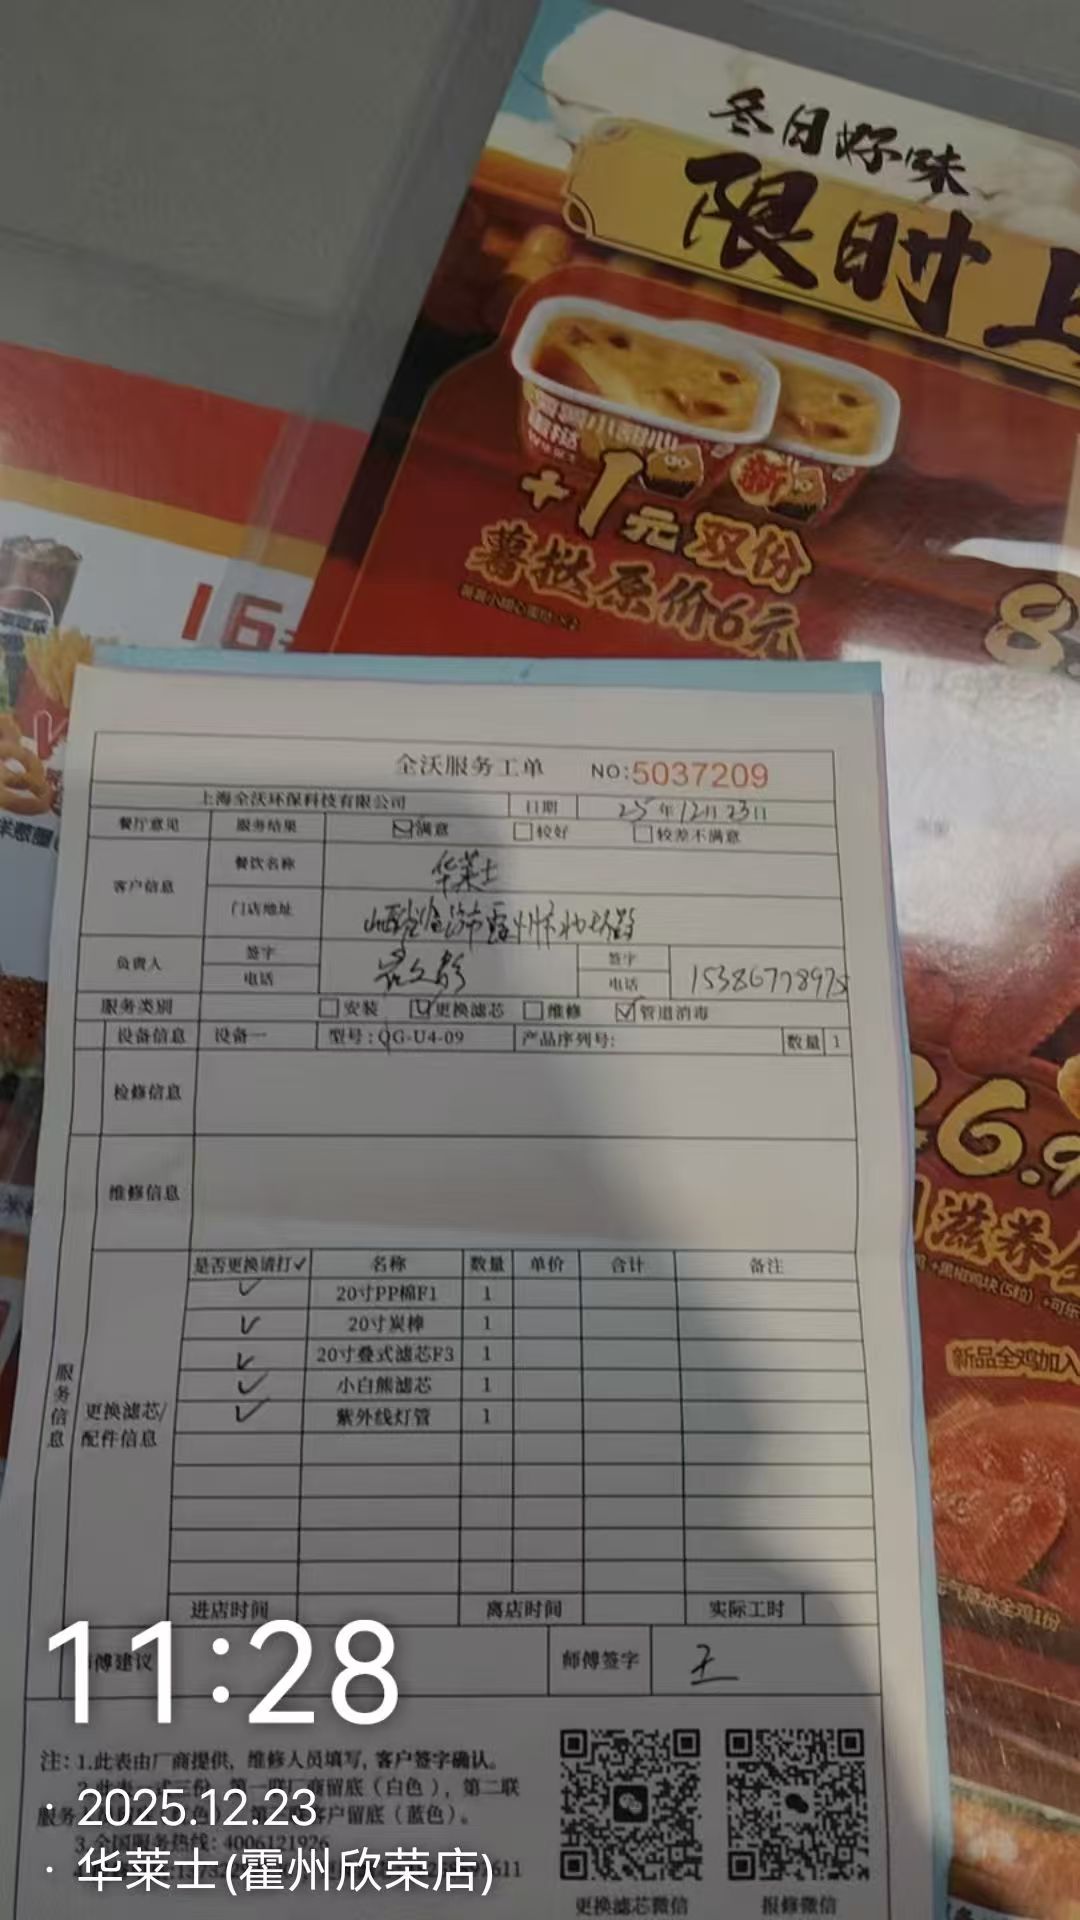 冬日好味
限时上
+1元双份
薯挞原价6元
薯薯小甜心蛋挞×2
16
8
26.9
滋养
新品全鸡加入
全沃服务工单 NO:5037209
上海全沃环保科技有限公司 日期 25年12月23日
餐厅意见 服务结果 满意 较好 较差不满意
客户信息 餐饮名称 华莱士
门店地址 山西省临汾市霍州市
负责人 签字 签字
电话 电话 15386778975
服务类别 安装 更换滤芯 维修 管道消毒
设备信息 设备一 型号:QG-U4-09 产品序列号: 数量 1
检修信息
维修信息
服务信息
更换滤芯/配件信息
是否更换请打✓ 名称 数量 单价 合计 备注
✓ 20寸PP棉F1 1
✓ 20寸炭棒 1
✓ 20寸叠式滤芯F3 1
✓ 小白熊滤芯 1
✓ 紫外线灯管 1
进店时间 离店时间 实际工时
傅建议 师傅签字 王
11:28
注:1.此表由厂商提供,维修人员填写,客户签字确认。
2.此表一式三份,第一联厂商留底(白色),第二联
服务 客户留底(蓝色)。
3.全国服务热线:4006121926
· 2025.12.23
· 华莱士(霍州欣荣店)
更换滤芯微信 报修微信